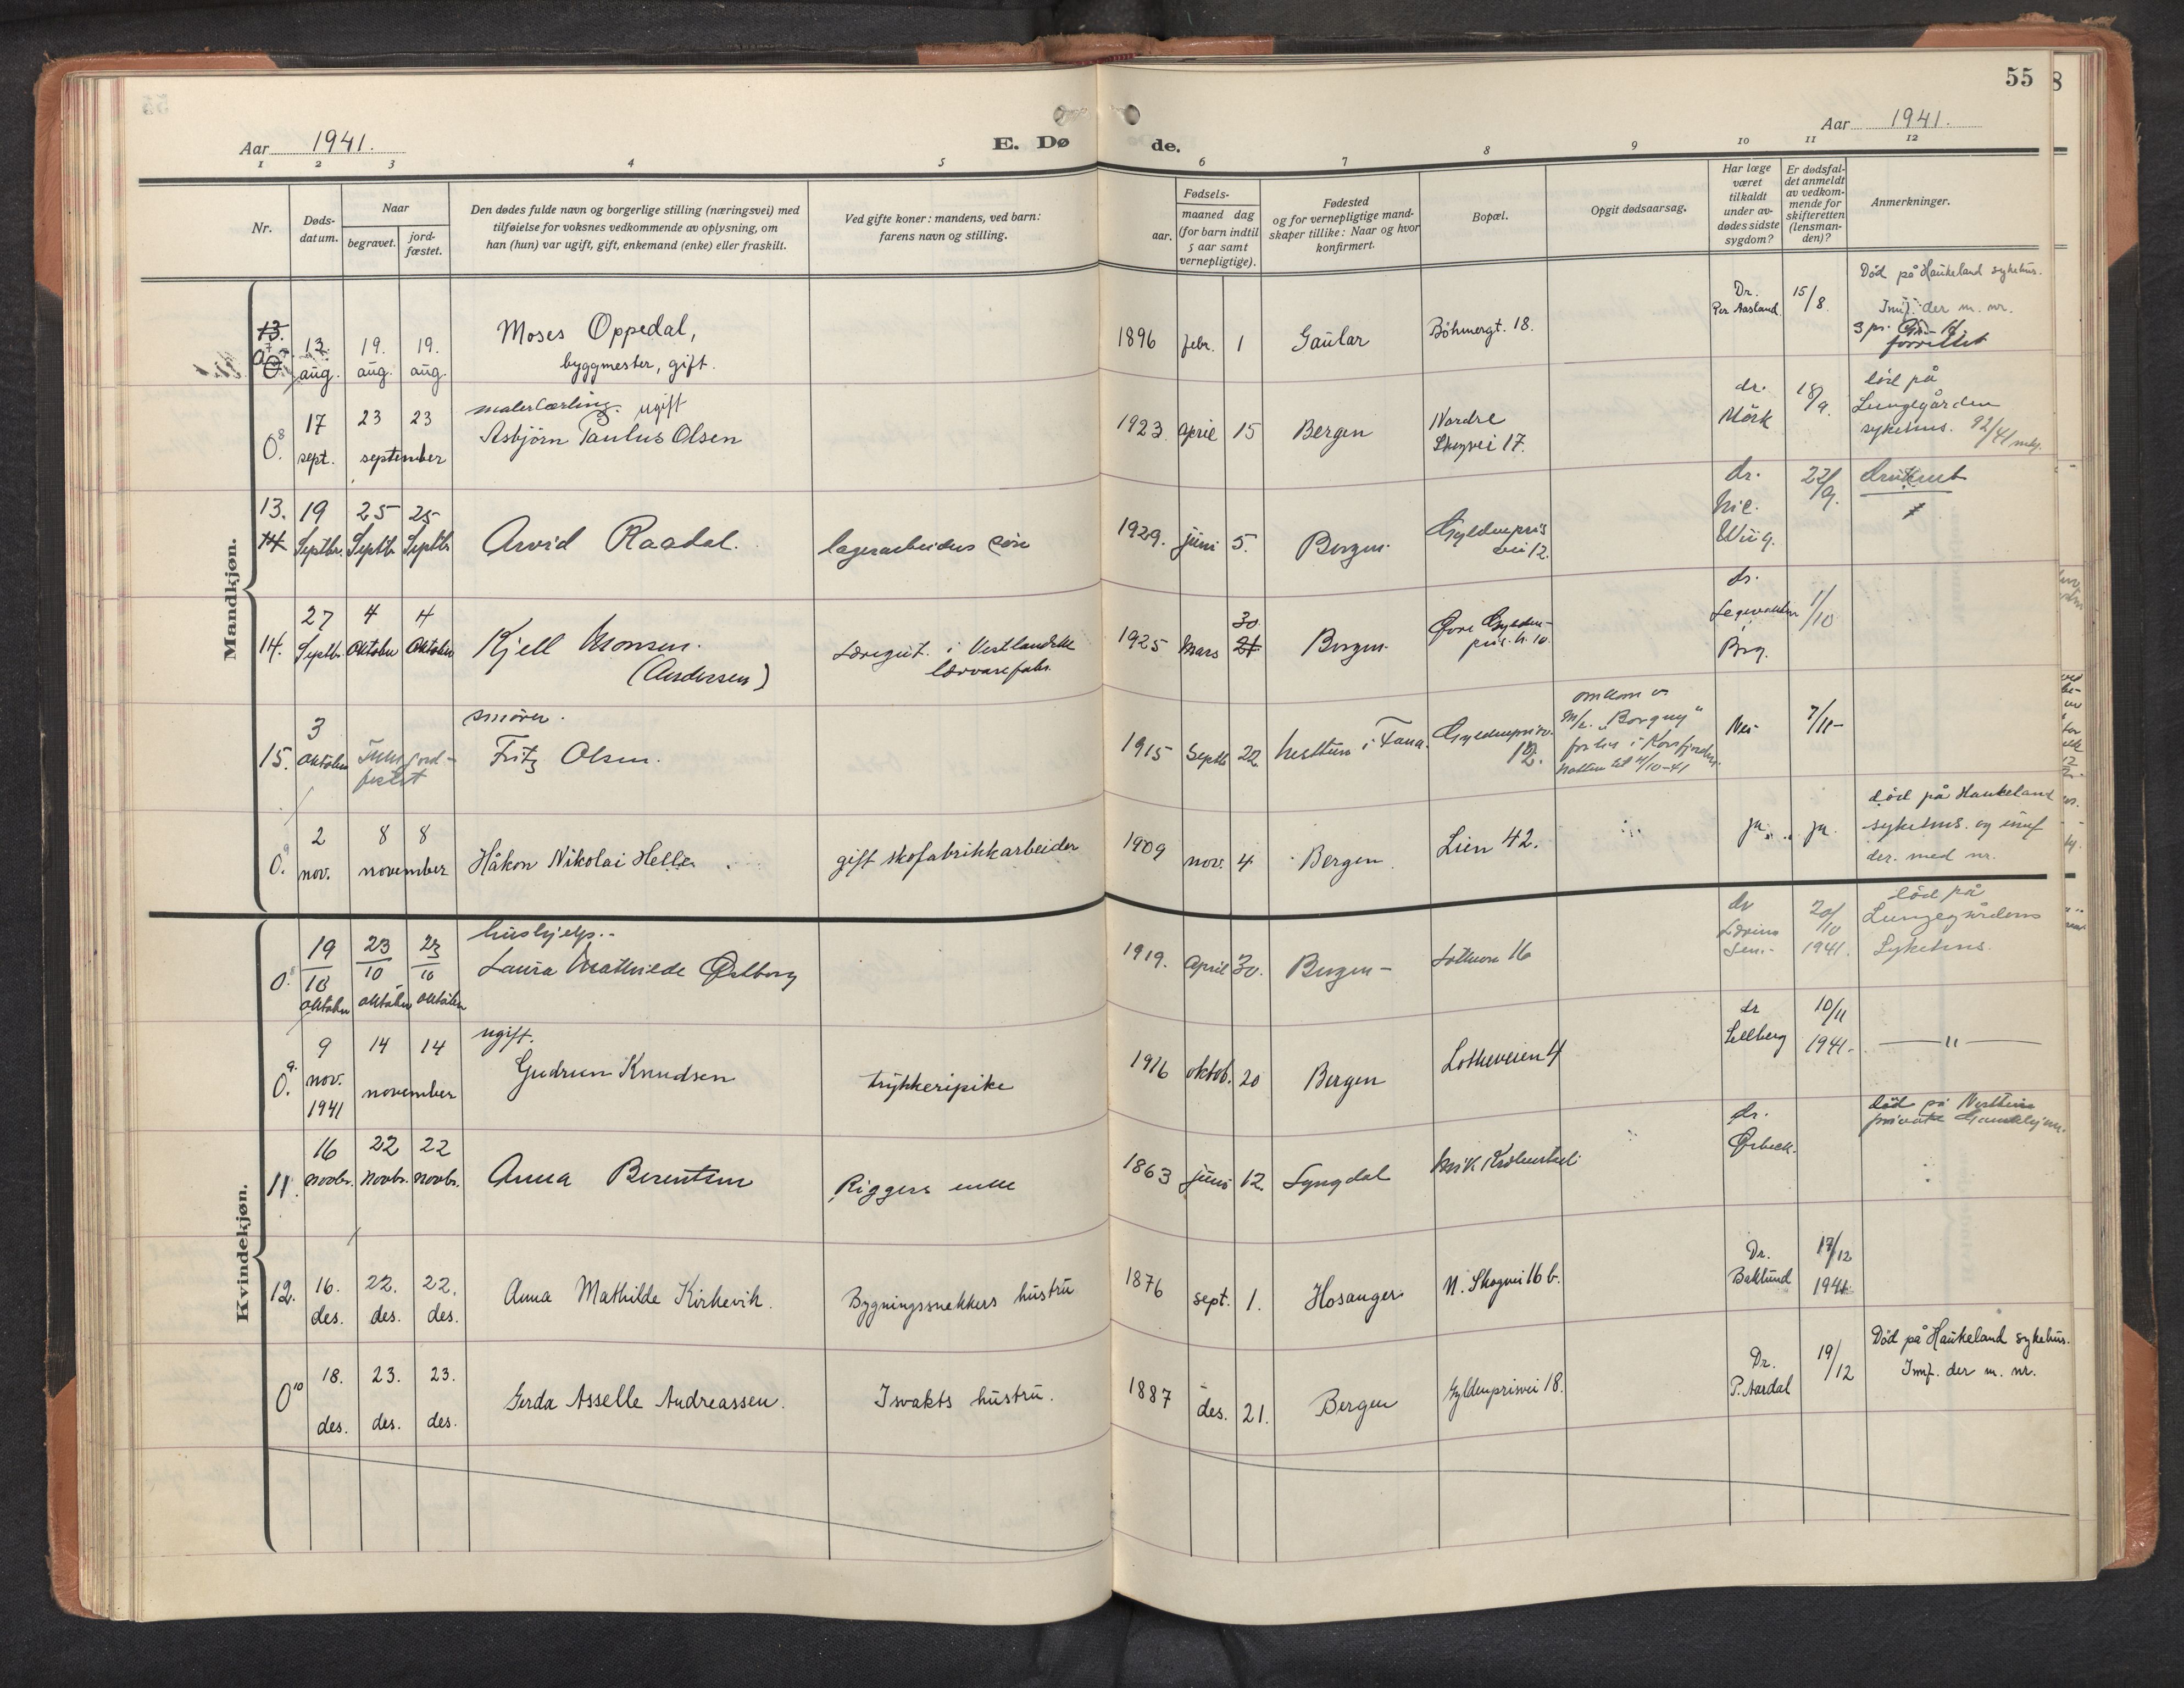 55
Aar 1941. E. Dø de. Aar 1941.
1 2 3 4 5 6 7 8 9 10 11 12
Nr.
Døds-
datum.
Naar
begravet.
jord-
fæstet.
Den dødes fulde navn og borgerlige stilling (næringsvei) med
tilføielse for voksnes vedkommende av oplysning, om
han (hun) var ugift, gift, enkemand (enke) eller fraskilt.
Ved gifte koner: mandens, ved barn:
farens navn og stilling.
Fødsels-
aar.
maaned dag
(for barn indtil
5 aar samt
vernepligtige).
Fødested
og for vernepligtige mand-
skaper tillike: Naar og hvor
konfirmert.
Bopæl.
Opgit dødsaarsag.
Har læge
været
tilkaldt
under av-
dødes sidste
sygdom?
Er dødsfal-
det anmeldt
av vedkom-
mende for
skifteretten
(lensman-
den)?
Anmerkninger.
Mandkjøn.
13.
7
13. aug.
19. aug.
19. aug.
Moses Oppedal,
byggmester, gift.
1896 febr. 1
Gaular
Böhmergt. 18.
Dr.
Per Aasland
15/8
Död på Haukeland sykehus.
Innf. der m. nr.
forrettet
O.8
17 sept.
23 23
september
malerlærling. ugift
Asbjörn Paulus Olsen
1923 April 15
Bergen
Nordre
Skogvei 17.
dr.
Mörk
18/9.
död på
Lungegården
sykehus. 92/41
13.
14
19 Septbr.
25 Septb.
25 Septb.
Arvid Raadal.
lagerarbeiders sön
1929. juni 5.
Bergen
Gyldenpris
vei 12.
dr.
Nic.
Wiig.
22/9.
druknet
14.
27 Septb.
4 Oktober
4 Oktober
Kjell Monsen.
(Andersen)
Læregut. i Vestlandske
lærvarefabr.
1925 Mars 30
21
Bergen
Øvre Gylden-
pris. 10
dr.
Legevakten
i
Brg.
1/10
15.
3 oktober
Ikke jord-
festet
smörer.
Fritz Olsen.
1915 Septb 22.
Nesttun i Fana.
Gyldenprisv.
12.
omkom
M/k. "Borgny"
forlis i Korsfjorden
natten til 4/10-41
Nei
7/11-
O.9
2 nov.
8 8
november
Håkon Nikolai Helle.
gift skofabrikkarbeider
1909 nov. 4
Bergen.
Lien 42.
ja. ja.
död på Haukeland
sykehus. og innf
der. med nr.
Kvindekjøn.
O.8
19/10 oktober
23/10 oktober
23/10 oktober
hushjelp.
Laura Mathilde Østborg
1919. April 30.
Bergen
Lotheve 16
dr
20/10
1941.
död på
Lungegårdens
Sykehus.
O.9.
9 nov. 1941
14 14
november
ugift.
Gudrun Knudsen
trykkeripike
1916 oktob. 20
Bergen
Lotheveien 4
dr
Lellberg
10/11
1941.
— " —
11.
16 novbr.
22 Novbr.
22 novbr.
Anna Berentsen
Riggers enke
1863 juni 12
Lyngdal
dr.
Ørbeck.
död på Nesttun
private Gamlehjem.
12.
16. des.
22. des.
22. des.
Anna Mathilde Kirkevik.
Bygningssnekkers hustru
1876 sept. 1.
Hosanger
N. Skogvei 16 b.
Dr.
Baklund
17/12
1941
O10
18. des.
23. des.
23. des.
Gerda Asselle Andreassen.
Isvakts hustru.
1887 des. 21.
Bergen
Gyldenprisvei 18.
Dr.
P. Aardal
19/12
Död på Haukeland sykehus.
Innf. der m. nr.